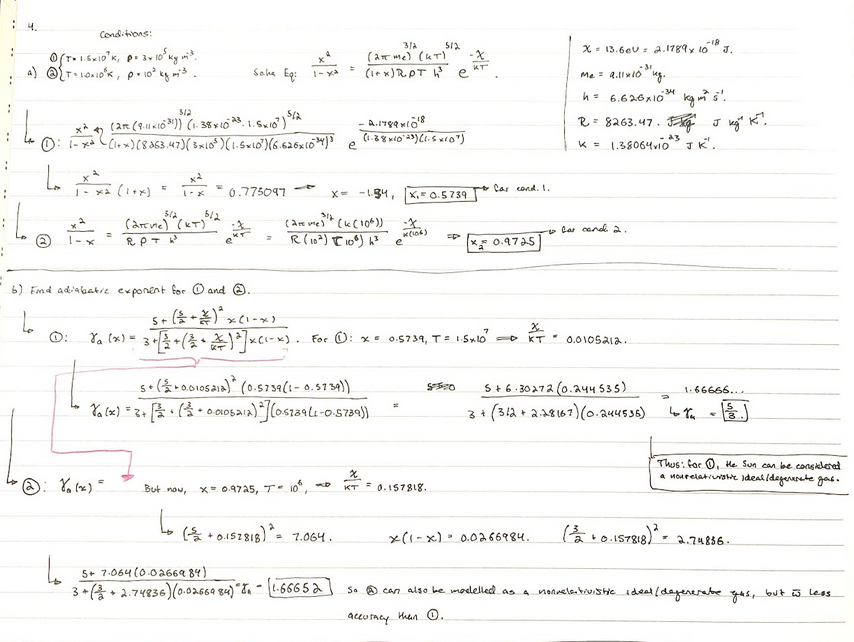 4.
Conditions:
a) ① { T = 1.5x10⁷ K, ρ = 3x10⁵ kg m⁻³.
② { T = 1.0x10⁶ K, ρ = 10² kg m⁻³.
Saha Eq: x²/(1-x²) = (2πme)^(3/2) (kT)^(5/2) / ((1+x) R ρ T h³) e^(-χ/kT).
χ = 13.6eV = 2.1789x10⁻¹⁸ J.
me = 9.11x10⁻³¹ kg.
h = 6.626x10⁻³⁴ kg m² s⁻¹.
R = 8263.47. J kg⁻¹ K⁻¹.
K = 1.38064x10⁻²³ J K⁻¹.
①: x²/(1-x²) = (2π(9.11x10⁻³¹))^(3/2) (1.38x10⁻²³ · 1.5x10⁷)^(5/2) / ((1+x)(8263.47)(3x10⁵)(1.5x10⁷)(6.626x10⁻³⁴)³) e^(-2.1789x10⁻¹⁸/(1.38x10⁻²³)(1.5x10⁷))
x²/(1-x²) (1+x) = x²/(1-x) = 0.773097 → x = -1.34, x₁ = 0.5739 → for cond. 1.
② x²/(1-x) = (2πme)^(3/2) (kT)^(5/2) / (R ρ T h³) e^(-χ/kT) = (2πme)^(3/2) (k(10⁶)) / (R (10²) (10⁶) h³) e^(-χ/k(10⁶)) ⇒ x₂ = 0.9725 → for cond 2.
b) Find adiabatic exponent for ① and ②.
①: γa (x) = (5 + (5/2 + χ/kT)² x(1-x)) / (3 + [3/2 + (3/2 + χ/kT)²] x(1-x)). For ①: x = 0.5739, T = 1.5x10⁷ ⇒ χ/kT = 0.0105212.
γa(x) = (5 + (5/2 + 0.0105212)² (0.5739(1-0.5739))) / (3 + [3/2 + (3/2 + 0.0105212)²](0.5739(1-0.5739))) = (5 + 6.30272(0.244535)) / (3 + (3/2 + 2.28167)(0.244535)) = 1.66666... ↳ γa = 5/3.
Thus: for ①, the Sun can be considered
a nonrelativistic ideal/degenerate gas.
②: γa(x) = But now, x = 0.9725, T = 10⁶, ⇒ χ/kT = 0.157818.
(5/2 + 0.157818)² = 7.064. x(1-x) = 0.0266984. (3/2 + 0.157818)² = 2.74836.
(5 + 7.064(0.0266984)) / (3 + (3/2 + 2.74836)(0.0266984)) = γa = 1.66652 So ② can also be modelled as a nonrelativistic ideal/degenerate gas, but w̄ less
accuracy than ①.